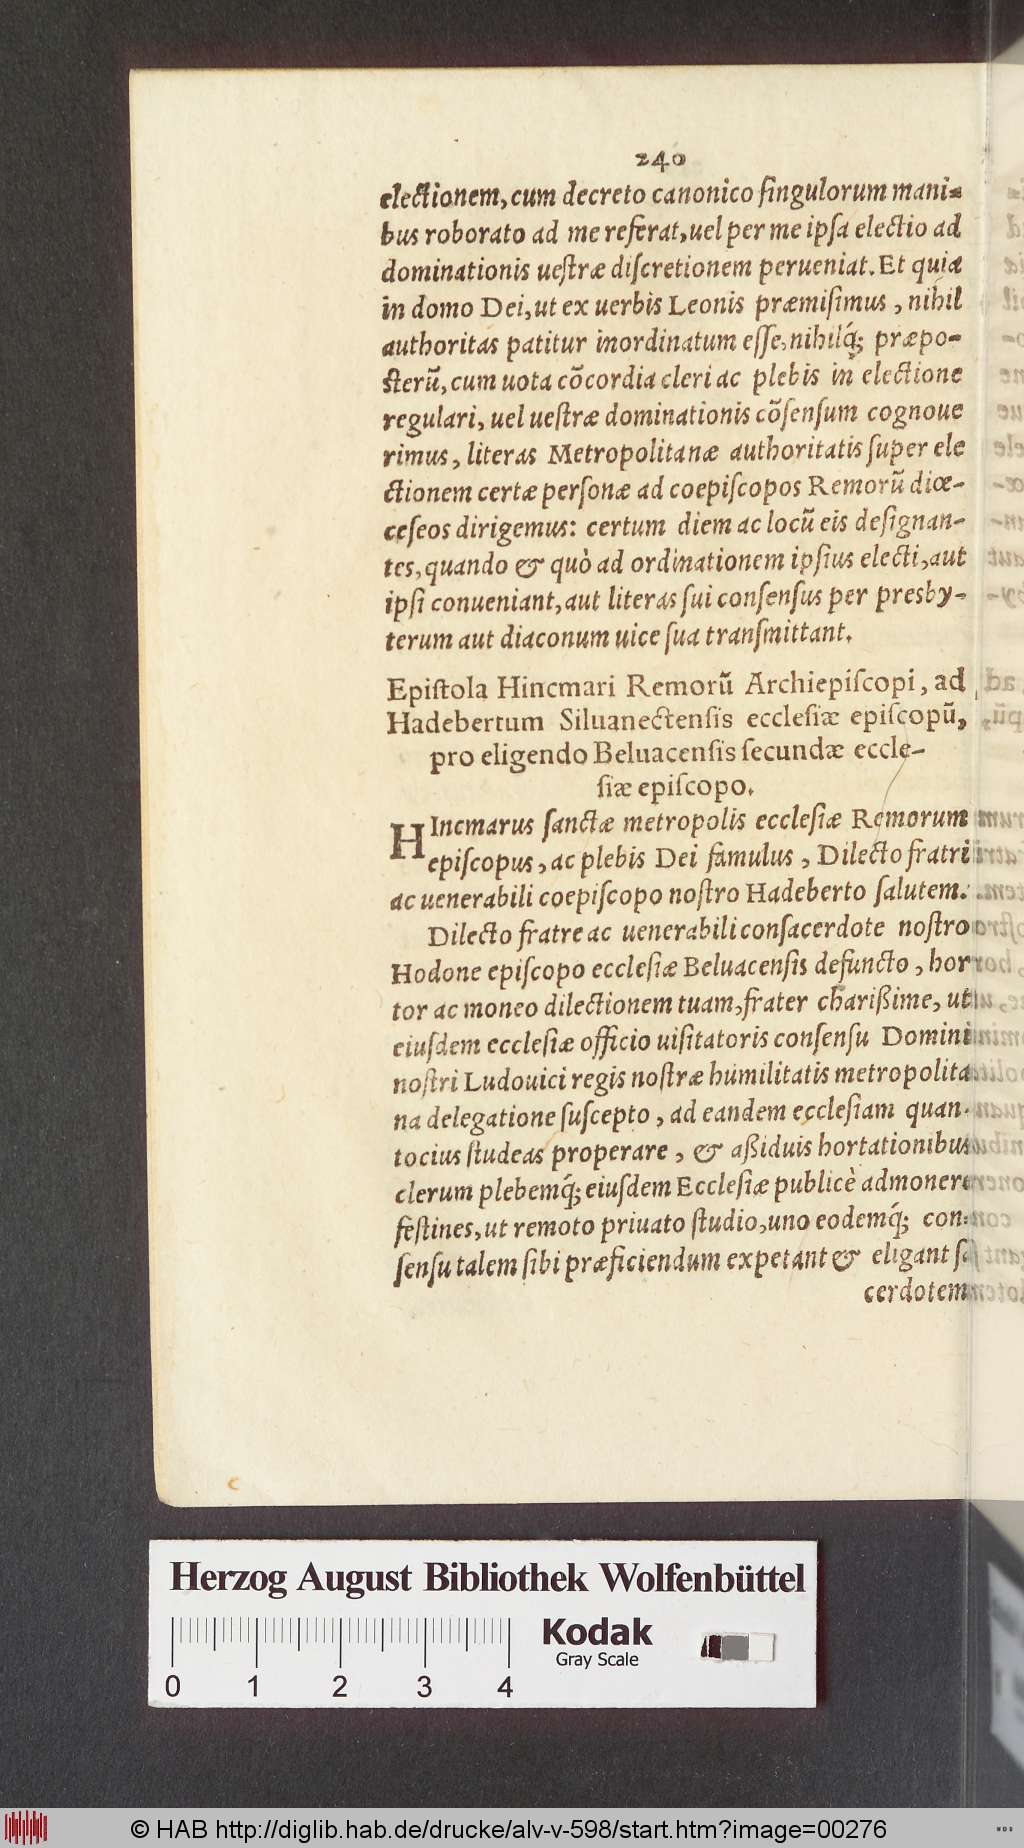 240
electionem, cum decreto canonico ſingulorum mani=
bus roborato ad me referat, uel per me ipſa electio ad
dominationis ueſtræ diſcretionem perueniat. Et quia
in domo Dei, ut ex uerbis Leonis præmiſimus, nihil
authoritas patitur inordinatum eſſe, nihilq́; præpo-
ſterũ, cum uota cõcordia cleri ac plebis in electione
regulari, uel ueſtræ dominationis cõſenſum cognoue
rimus, literas Metropolitanæ authoritatis ſuper ele
ctionem certæ perſonæ ad coepiſcopos Remorũ diœ-
ceſeos dirigemus: certum diem ac locũ eis deſignan-
tes, quando & quò ad ordinationem ipſius electi, aut
ipſi conueniant, aut literas ſui conſenſus per presby-
terum aut diaconum uice ſua tranſmittant.
Epiſtola Hincmari Remorũ Archiepiſcopi, ad
Hadebertum Siluanectenſis eccleſiæ epiſcopũ,
pro eligendo Beluacenſis ſecundæ eccle-
ſiæ epiſcopo.
HIncmarus ſanctæ metropolis eccleſiæ Remorum
epiſcopus, ac plebis Dei famulus, Dilecto fratri
ac uenerabili coepiſcopo noſtro Hadeberto ſalutem.
Dilecto fratre ac uenerabili conſacerdote noſtro
Hodone epiſcopo eccleſiæ Beluacenſis defuncto, hor
tor ac moneo dilectionem tuam, frater charißime, ut
eiuſdem eccleſiæ officio uiſitatoris conſenſu Domini
noſtri Ludouici regis noſtræ humilitatis metropolita
na delegatione ſuſcepto, ad eandem eccleſiam quan-
tocius ſtudeas properare, & aßiduis hortationibus
clerum plebemq́; eiuſdem Eccleſiæ publicè admonere
feſtines, ut remoto priuato ſtudio, uno eodemq́; con=
ſenſu talem ſibi præficiendum expetant & eligant ſa
cerdotem
Herzog August Bibliothek Wolfenbüttel
Kodak
Gray Scale
0 1 2 3 4
© HAB http://diglib.hab.de/drucke/alv-v-598/start.htm?image=00276